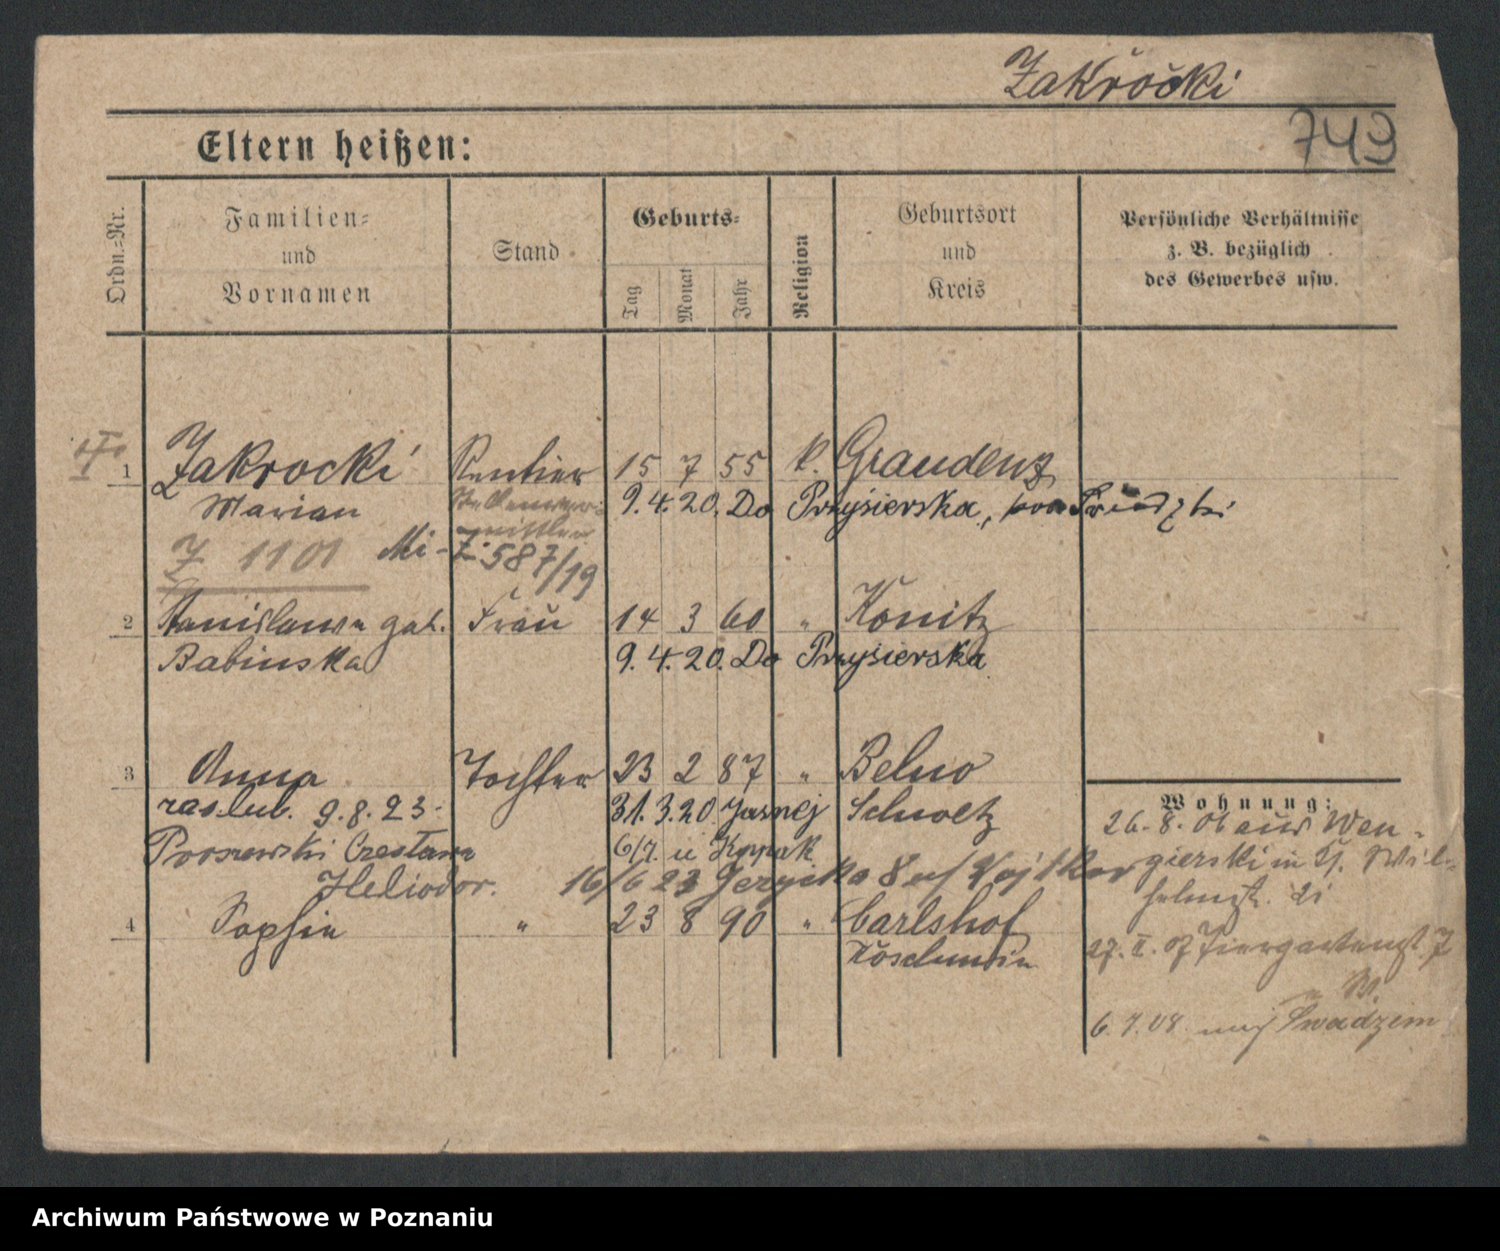 Zakrocki
749
Eltern heißen:
Ordn.=Nr.
Familien=
und
Vornamen
Stand
Geburts=
Tag
Monat
Jahr
Religion
Geburtsort
und
Kreis
Persönliche Verhältnisse
z. B. bezüglich
des Gewerbes usw.
1 Zakrocki Rentier 15 7 55 k. Graudenz
Marian 9. 4. 20. Do Przysierska, von
Z 1101 Mi - Z. 587/19
2 Stanislawa geb. Frau 14 3 60 " Konitz
Babinska 9. 4. 20. Do Przysierska
3 Anna Tochter 23 2 87 " Belno
zaslub. 9. 8. 23. 31. 3. 20 Schwetz
Heliodor. 16/6 23
4 Sophie " 23 8 90 " Carlshof
Wohnung:
26. 8. 06 aus Wen-
gierski in
27. II. 07 Tiergartenst. 7
6. 7. 08 nach Swadzim
Archiwum Państwowe w Poznaniu